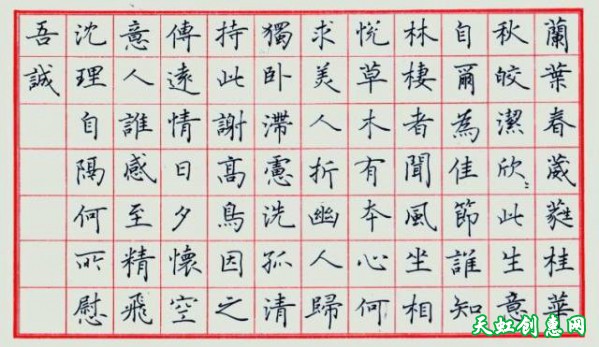 蘭葉春葳蕤桂華
秋皎潔欣〻此生意
自爾為佳節誰知
林棲者聞風坐相
悅草木有夲心何
求美人折幽人歸
獨卧滯慮洗孤清
持此謝高鳥因之
傳遠情日夕懷空
意人誰感至精飛
沈理自隔何所慰
吾誠
天虹创意网